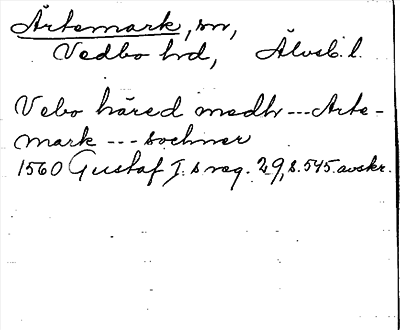 Ärtemark, sn,
Vedbo hd, Älvsb. l.
Vebo häred medh --- Arte-
mark --- sochner
1560 Gustaf I:s reg. 29, s. 545. avskr.